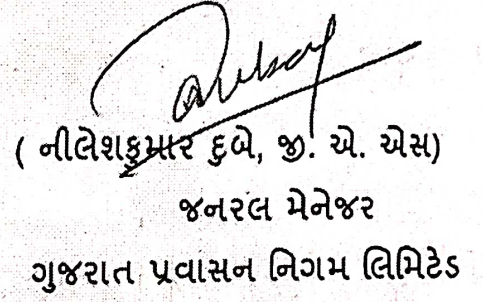 ( નીલેશકુમાર દુબે, જી. એ. એસ)
જનરલ મેનેજર
ગુજરાત પ્રવાસન નિગમ લિમિટેડ